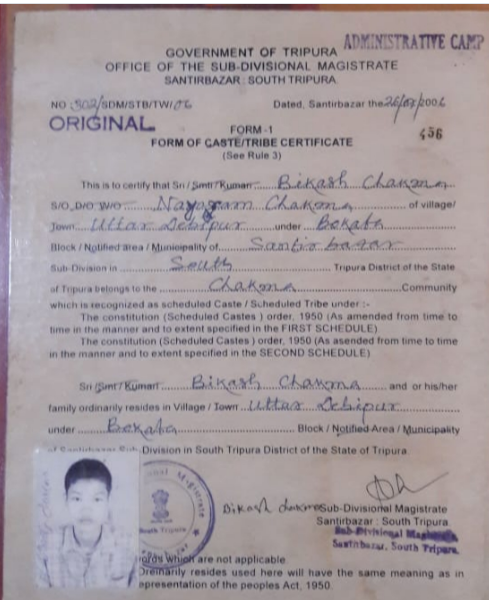 ADMINISTRATIVE CAMP
GOVERNMENT OF TRIPURA
OFFICE OF THE SUB-DIVISIONAL MAGISTRATE
SANTIRBAZAR : SOUTH TRIPURA
NO :502/SDM/STB/TW/06 Dated, Santirbazar the 2006
ORIGINAL
FORM -1
456
FORM OF CASTE/TRIBE CERTIFICATE
(See Rule 3)
This is to certify that Sri / Smt / Kumari Bikash Chakma
S/O, D/O W/O Chakma of village/
Town Uttar Debipur under Bokafa
Block / Notified area / Municipality of Santirbazar
Sub-Division in South Tripura District of the State
of Tripura belongs to the Chakma Community
which is recognized as scheduled Caste / Scheduled Tribe under :-
The constitution (Scheduled Castes ) order, 1950 (As amended from time to
time in the manner and to extent specified in the FIRST SCHEDULE)
The constitution (Scheduled Castes ) order, 1950 (As asended from time to time
in the manner and to extent specified in the SECOND SCHEDULE)
Sri /Smt / Kumari Bikash Chakma and or his/her
family ordinarily resides in Village / Town Uttar Debipur
under Bokafa Block / Notified Area / Municipality
of Santirbazar Sub-Division in South Tripura District of the State of Tripura.
Bikash chakma
Sub-Divisional Magistrate
Santirbazar : South Tripura
Sub-Divisional Magistrate
Santirbazar, South Tripura.
Magistrate
South Tripura
words which are not applicable.
Ordinarily resides used here will have the same meaning as in
epresentation of the peoples Act, 1950.